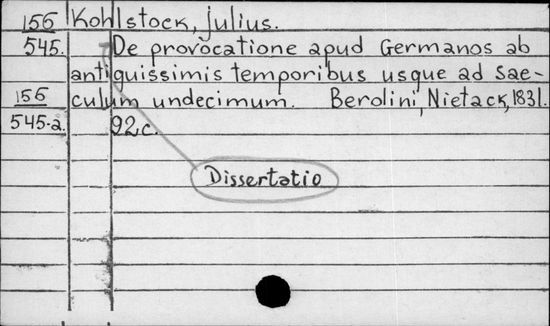 156 Kohlstock, Julius.
545. De provocatione apud Germanos ab
antiquissimis temporibus usque ad Sae-
156 culum undecimum. Berolini, Nietack, 1831.
545.a. 92.c.
Dissertatio